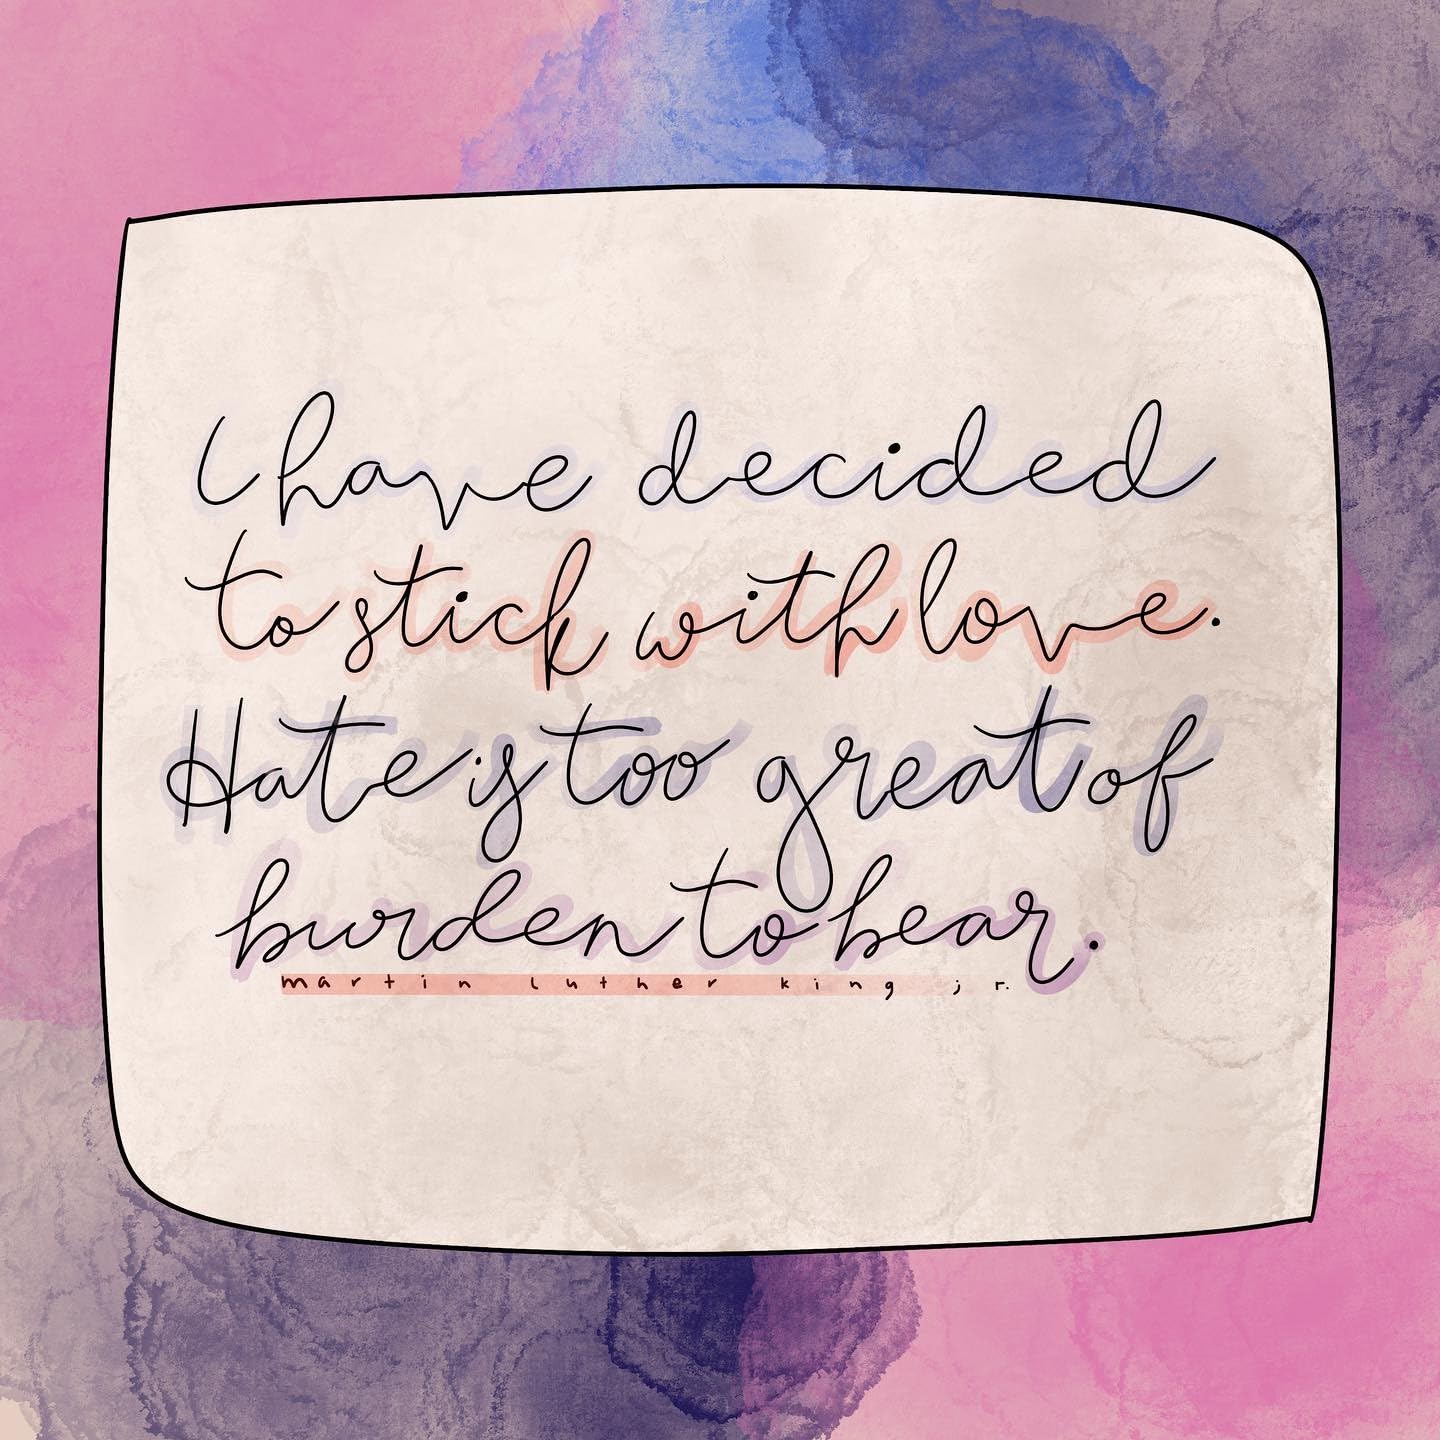 I have decided
to stick with love.
Hate is too great of
burden to bear.
martin luther king jr.